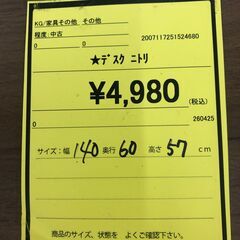 KG/家具その他 その他
程度:中古
2007117251524680
0 0
★ﾃﾞｽｸ ﾆﾄﾘ
¥4,980(税込)
0 260425
サイズ:幅 140 奥行 60 高さ 57 cm
商品のサイズ、状態を よくご確認下さい。